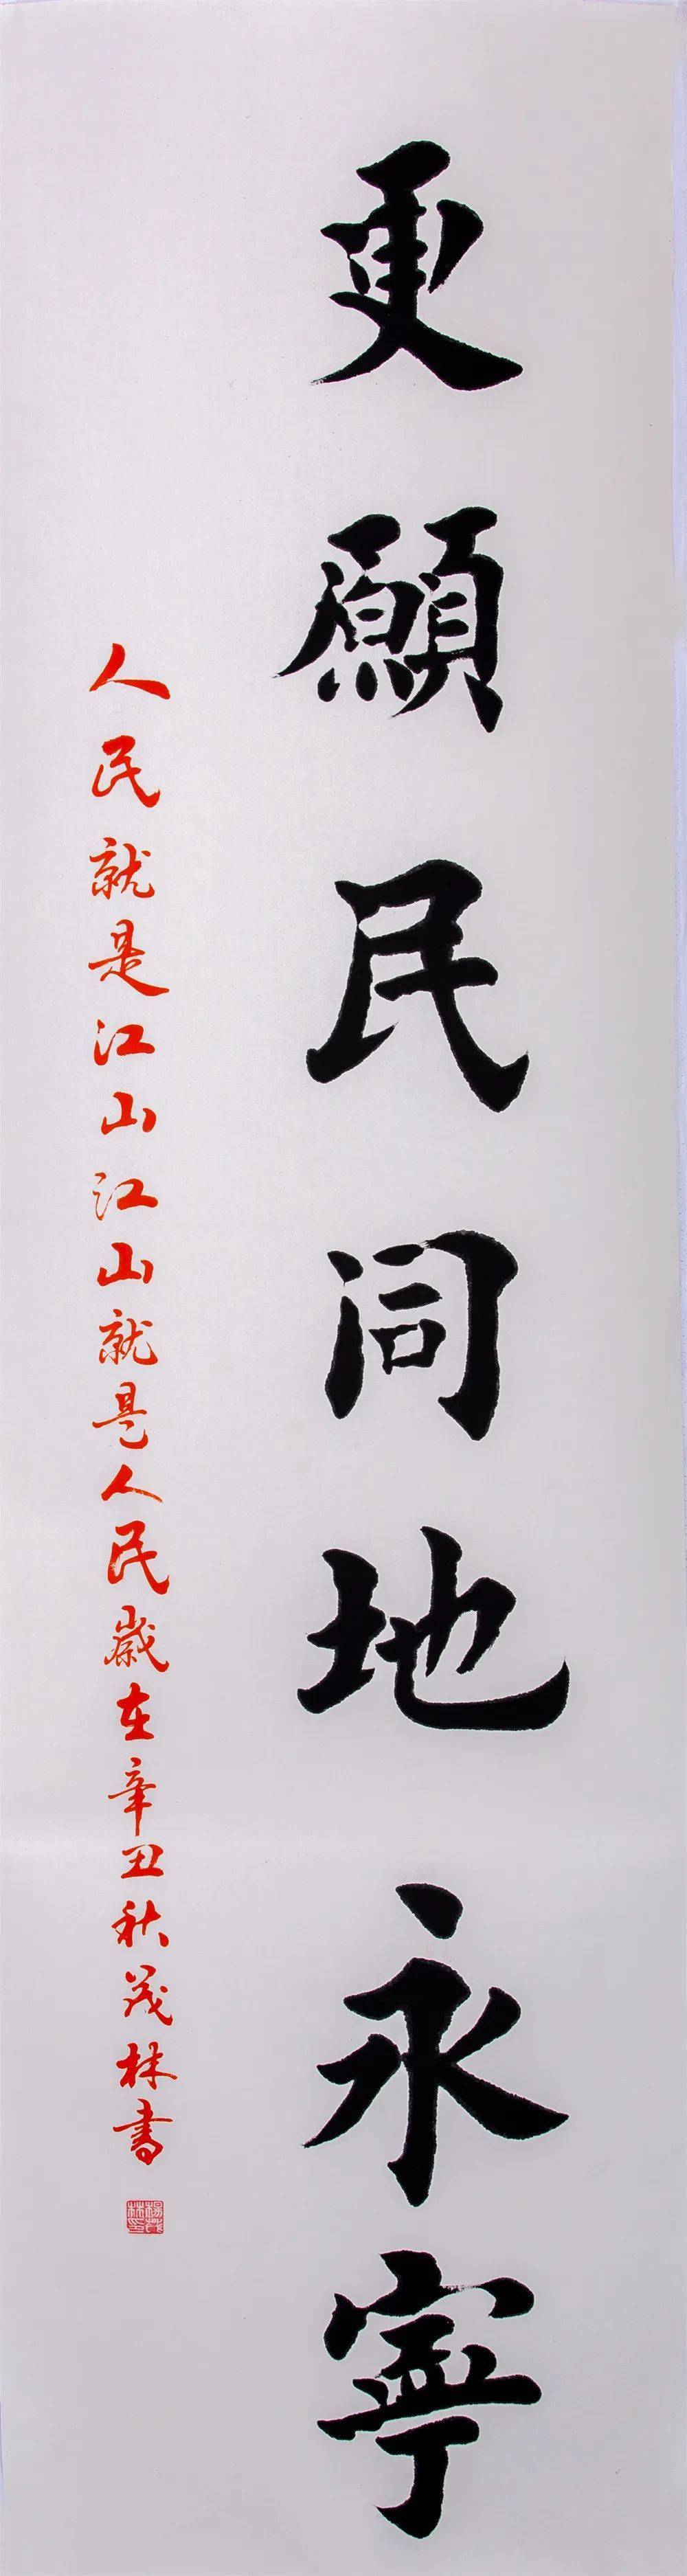 更願民同地永寧
人民就是江山江山就是人民歲在辛丑秋茂林書